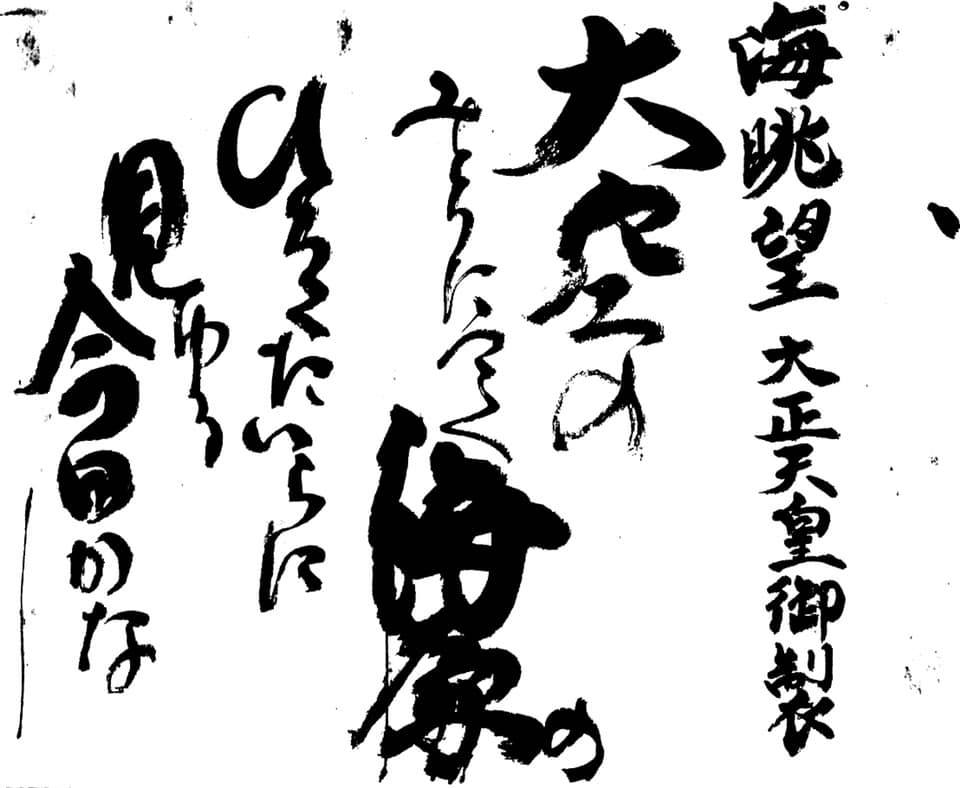 海眺望 大正天皇御製
大空の
みとりにつゝく海原の
ひろくたいらに
見ゆる
今日かな